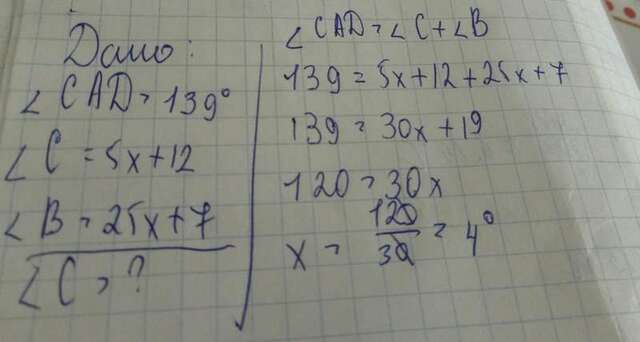 Дано:
∠CAD = 139°
∠C = 5x+12
∠B = 25x+7
∠C = ?
∠CAD = ∠C + ∠B
139 = 5x+12+25x+7
139 = 30x+19
120 = 30x
x = 120/30 = 4°